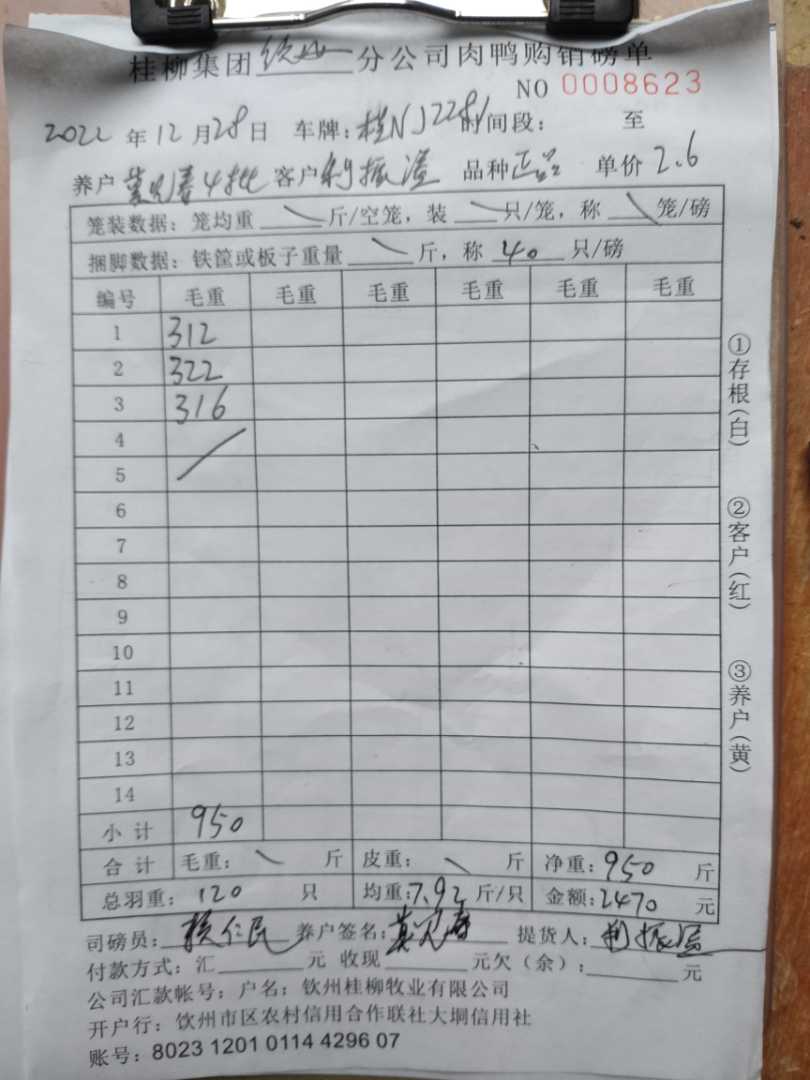 桂柳集团钦州分公司肉鸭购销磅单
NO 0008623
2022年12月28日 车牌:桂NJ2281 时间段: 至
养户 春4批 客户 利振 品种 正品 单价 2.6
笼装数据: 笼均重 \ 斤/空笼, 装 \ 只/笼, 称 \ 笼/磅
捆脚数据: 铁筐或板子重量 \ 斤, 称 40 只/磅
编号 毛重 毛重 毛重 毛重 毛重 毛重
1 312
2 322
3 316
4
5
6
7
8
9
10
11
12
13
14
小计 950
合计 毛重: \ 斤 皮重: \ 斤 净重: 950 斤
总羽重: 120 只 均重: 7.92 斤/只 金额: 2470 元
司磅员: 仁民 养户签名: 春 提货人: 利振
付款方式: 汇 元 收现 元欠(余): 元
公司汇款帐号: 户名: 钦州桂柳牧业有限公司
开户行: 钦州市区农村信用合作联社大垌信用社
账号: 8023 1201 0114 4296 07
①存根(白)
②客户(红)
③养户(黄)